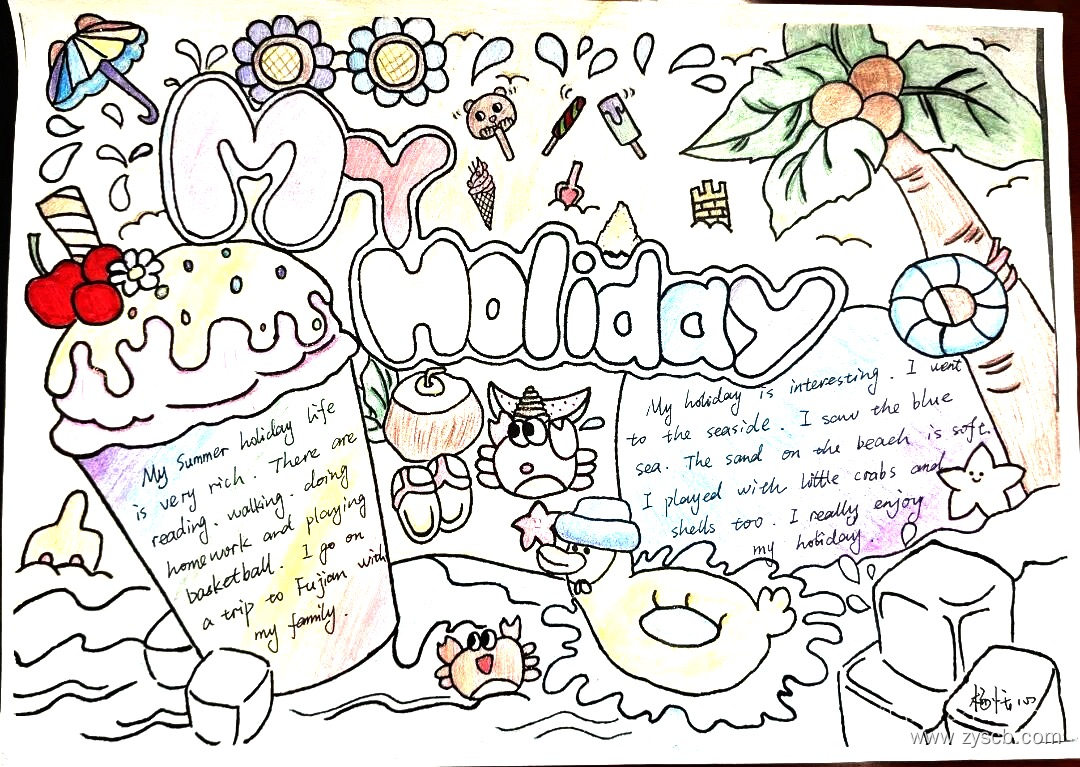 My
Holiday
My Summer holiday life
is very rich. There are
reading. walking. doing
homework and playing
basketball. I go on
a trip to Fujian with
my family.
My holiday is interesting. I went
to the seaside. I saw the blue
sea. The sand on the beach is soft.
I played with little crabs and
shells too. I really enjoy
my holiday.
www.zyscb.com